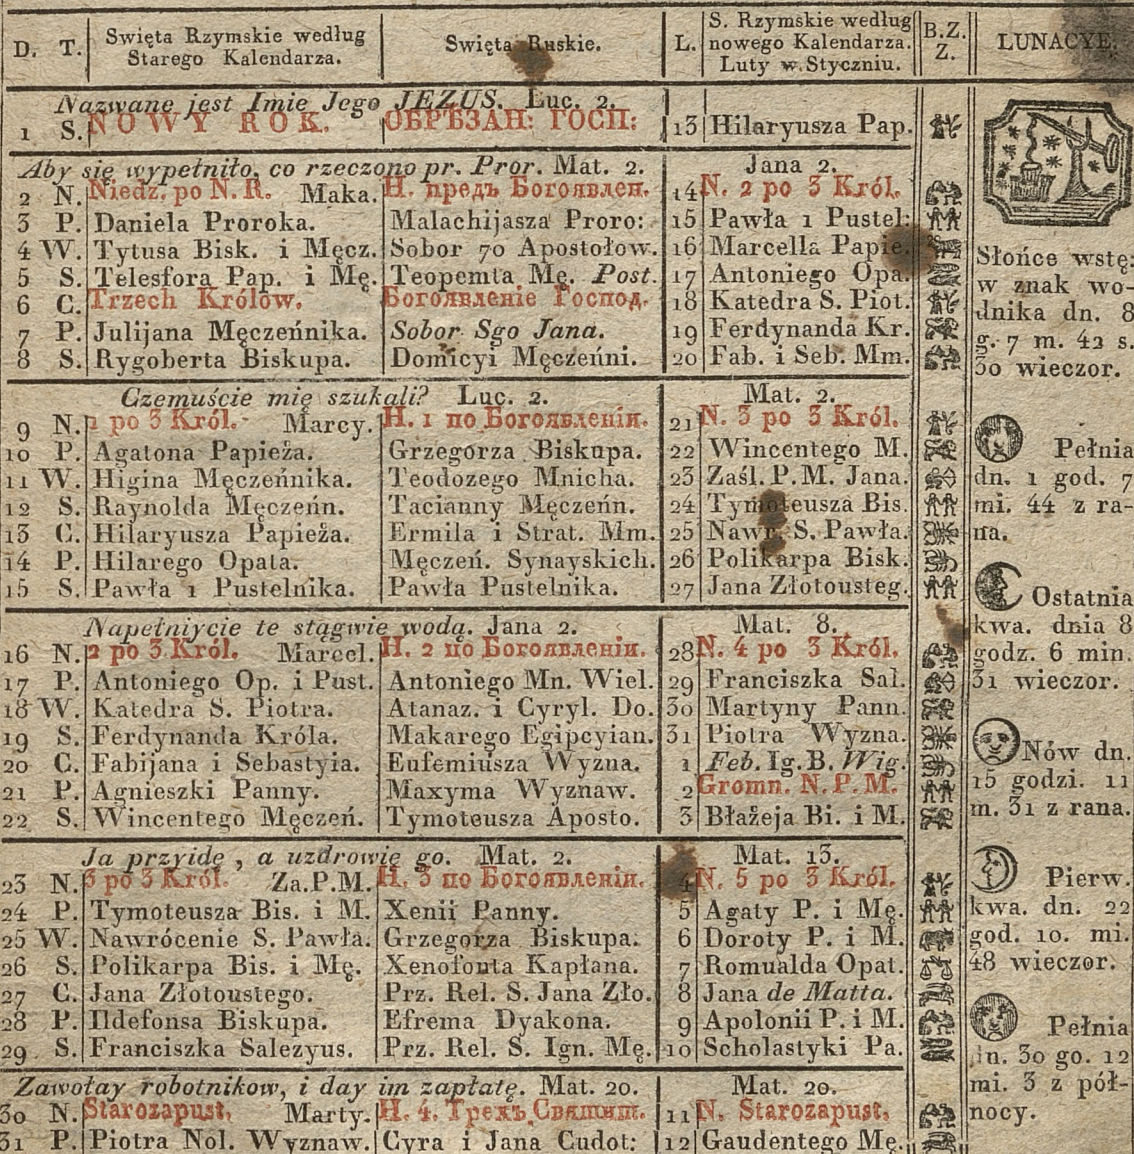 D. T. Swięta Rzymskie według Starego Kalendarza. Swięta Ruskie. L. S. Rzymskie według nowego Kalendarza. Luty w Styczniu. B.Z. Z. LUNACYE.
Nazwane jest Imie Jego JEZUS. Luc. 2.
1 S. NOWY ROK. ОБРѢЗАН: ГОСП: 13 Hilaryusza Pap.
Aby się wypełniło, co rzeczono pr. Pror. Mat. 2. Jana 2.
2 N. Niedz. po N. R. Maka. Н. предъ Богоявлен. 14 N. 2 po 3 Król.
3 P. Daniela Proroka. Malachijasza Proro: 15 Pawła 1 Pustel:
4 W. Tytusa Bisk. i Męcz. Sobor 70 Apostołow. 16 Marcella Papie.
5 S. Telesfora Pap. i Mę. Teopemta Mę. Post. 17 Antoniego Opa.
6 C. Trzech Królow. Богоявленіе Господ. 18 Katedra S. Piot.
7 P. Julijana Męczeńnika. Sobor Sgo Jana. 19 Ferdynanda Kr.
8 S. Rygoberta Biskupa. Domicyi Męczeńni. 20 Fab. i Seb. Mm.
Czemuście mię szukali? Luc. 2. Mat. 2.
9 N. 1 po 3 Król. Marcy. Н. 1 по Богоявленіи. 21 N. 3 po 3 Król.
10 P. Agatona Papieża. Grzegorza Biskupa. 22 Wincentego M.
11 W. Higina Męczeńnika. Teodozego Mnicha. 23 Zaśl. P. M. Jana.
12 S. Raynolda Męczeńn. Tacianny Męczeńn. 24 Tymoteusza Bis.
13 C. Hilaryusza Papieża. Ermila i Strat. Mm. 25 Nawr. S. Pawła.
14 P. Hilarego Opata. Męczeń. Synayskich. 26 Polikarpa Bisk.
15 S. Pawła 1 Pustelnika. Pawła Pustelnika. 27 Jana Złotousteg.
Napełniycie te stągwie wodą. Jana 2. Mat. 8.
16 N. 2 po 3 Król. Marcel. Н. 2 по Богоявленіи. 28 N. 4 po 3 Król.
17 P. Antoniego Op. i Pust. Antoniego Mn. Wiel. 29 Franciszka Sal.
18 W. Katedra S. Piotra. Atanaz. i Cyryl. Do. 30 Martyny Pann.
19 S. Ferdynanda Króla. Makarego Egipcyian. 31 Piotra Wyzna.
20 C. Fabijana i Sebastyia. Eufemiusza Wyzna. 1 Feb. Ig. B. Wig.
21 P. Agnieszki Panny. Maxyma Wyznaw. 2 Gromn. N. P. M.
22 S. Wincentego Męczeń. Tymoteusza Aposto. 3 Błażeja Bi. i M.
Ja przyidę, a uzdrowię go. Mat. 2. Mat. 13.
23 N. 3 po 3 Król. Za.P.M. Н. 3 по Богоявленіи. 4 N. 5 po 3 Król.
24 P. Tymoteusza Bis. i M. Xenii Panny. 5 Agaty P. i Mę.
25 W. Nawrócenie S. Pawła. Grzegorza Biskupa. 6 Doroty P. i M.
26 S. Polikarpa Bis. i Mę. Xenofonta Kapłana. 7 Romualda Opat.
27 C. Jana Złotoustego. Prz. Rel. S. Jana Zło. 8 Jana de Matta.
28 P. Ildefonsa Biskupa. Efrema Dyakona. 9 Apolonii P. i M.
29 S. Franciszka Salezyus. Prz. Rel. S. Ign. Mę. 10 Scholastyki Pa.
Zawołay robotnikow, i day im zapłatę. Mat. 20. Mat. 20.
30 N. Starozapust. Marty. Н. 4. Трехъ Святит. 11 N. Starozapust.
31 P. Piotra Nol. Wyznaw. Cyra i Jana Cudot: 12 Gaudentego Mę.
Słońce wstę:
w znak wo-
dnika dn. 8
g. 7 m. 42 s.
50 wieczor.
Pełnia
dn. 1 god. 7
mi. 44 z ra-
na.
Ostatnia
kwa. dnia 8
godz. 6 min.
31 wieczor.
Nów dn.
15 godzi. 11
m. 31 z rana.
Pierw.
kwa. dn. 22
god. 10. mi.
48 wieczor.
Pełnia
dn. 30 go. 12
mi. 3 z pół-
nocy.